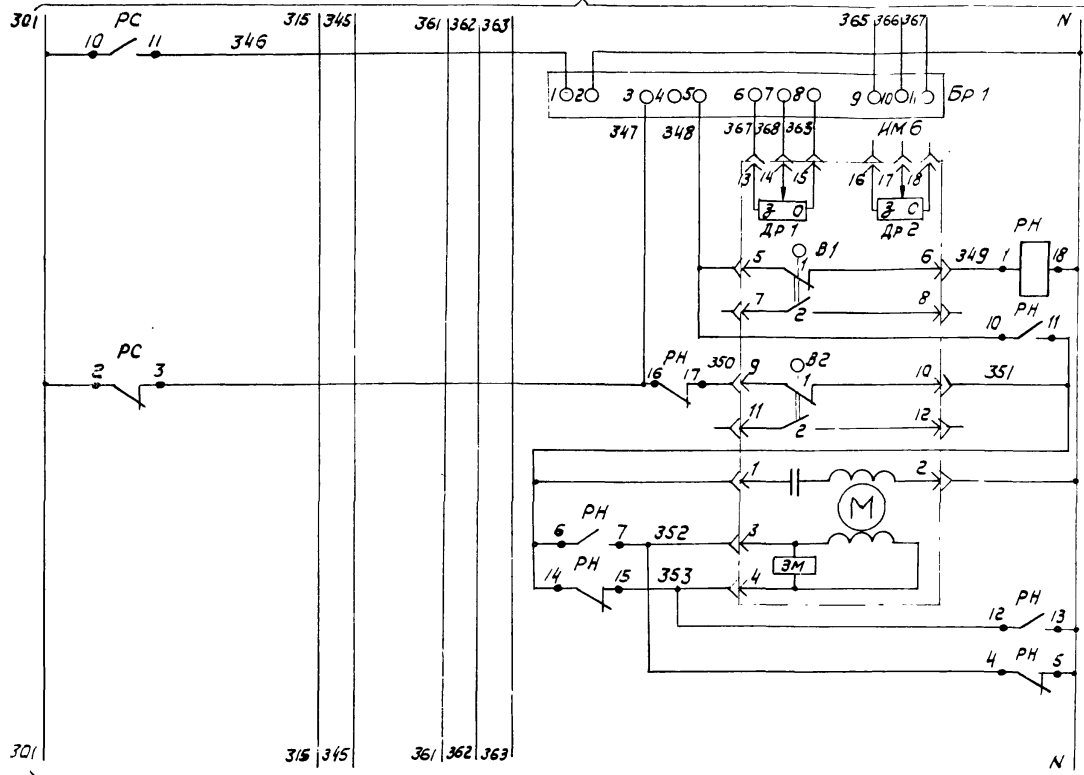 301 РС 315 345 361 362 363 365 366 367 N
10 11 346
1 2 3 4 5 6 7 8 9 10 11 БР1
347 348 367 368 365 ИМ6
13 14 15 16 17 18
З О З С
ДР1 ДР2 РН
В1
5 1 6 349 1 18
7 2 8 РН
10 11
РС РН 350 В2
2 3 16 17 9 1 10 351
11 2 12
1 2
М
РН
6 7 352 3
РН ЭМ
14 15 353 4
РН
12 13
РН
4 5
301 315 345 361 362 363 N